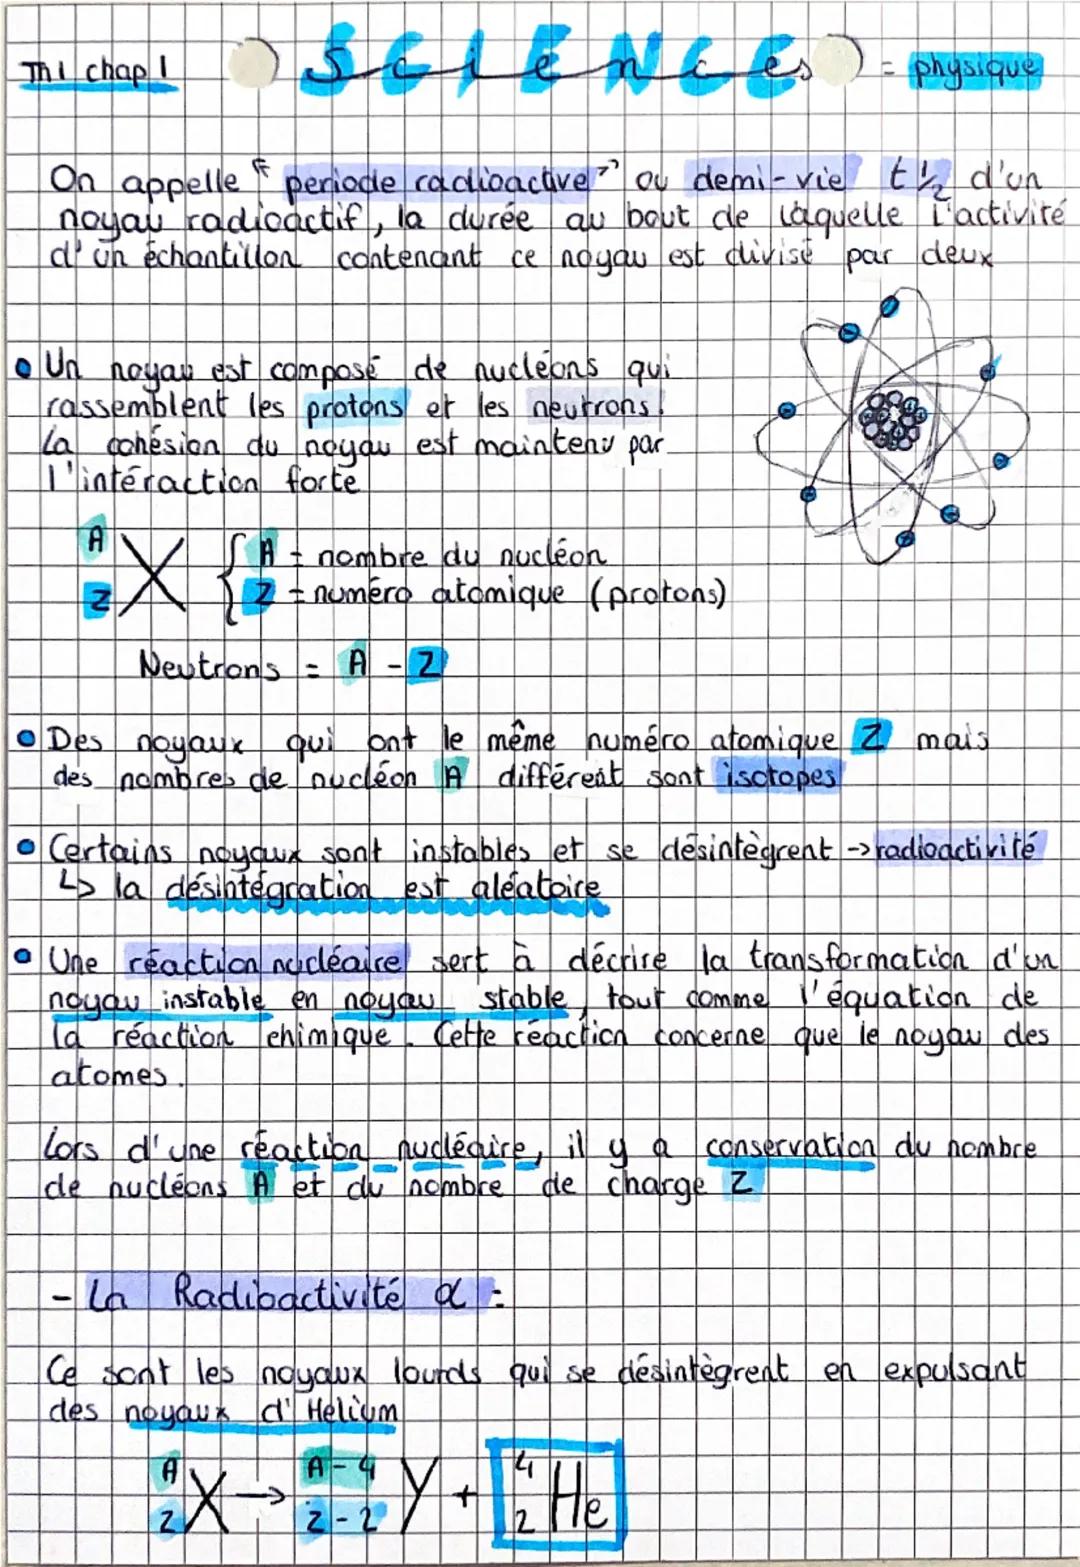 Th1 chap 1 Sciences = physique
On appelle "periode radioactive" ou demi-vie t1/2 d'un
noyau radioactif, la durée au bout de laquelle l'activité
d'un échantillon contenant ce noyau est divisé par deux
• Un noyau est composé de nucléons qui
rassemblent les protons et les neutrons.
La cohésion du noyau est maintenu par
l'intéraction forte
A
Z X { A = nombre du nucléon
Z = numéro atomique (protons)
Neutrons = A - Z
• Des noyaux qui ont le même numéro atomique Z mais
des nombres de nucléon A différent sont isotopes
• Certains noyaux sont instables et se désintègrent → radioactivité
↳ la désintégration est aléatoire
• Une réaction nucléaire sert à décrire la transformation d'un
noyau instable en noyau stable, tout comme l'équation de
la réaction chimique. Cette réaction concerne que le noyau des
atomes.
Lors d'une réaction nucléaire, il y a conservation du nombre
de nucléons A et du nombre de charge Z
- La Radioactivité α :
Ce sont les noyaux lourds qui se désintègrent en expulsant
des noyaux d'Helium
A X → A-4 Y + 4 He
Z Z-2 2